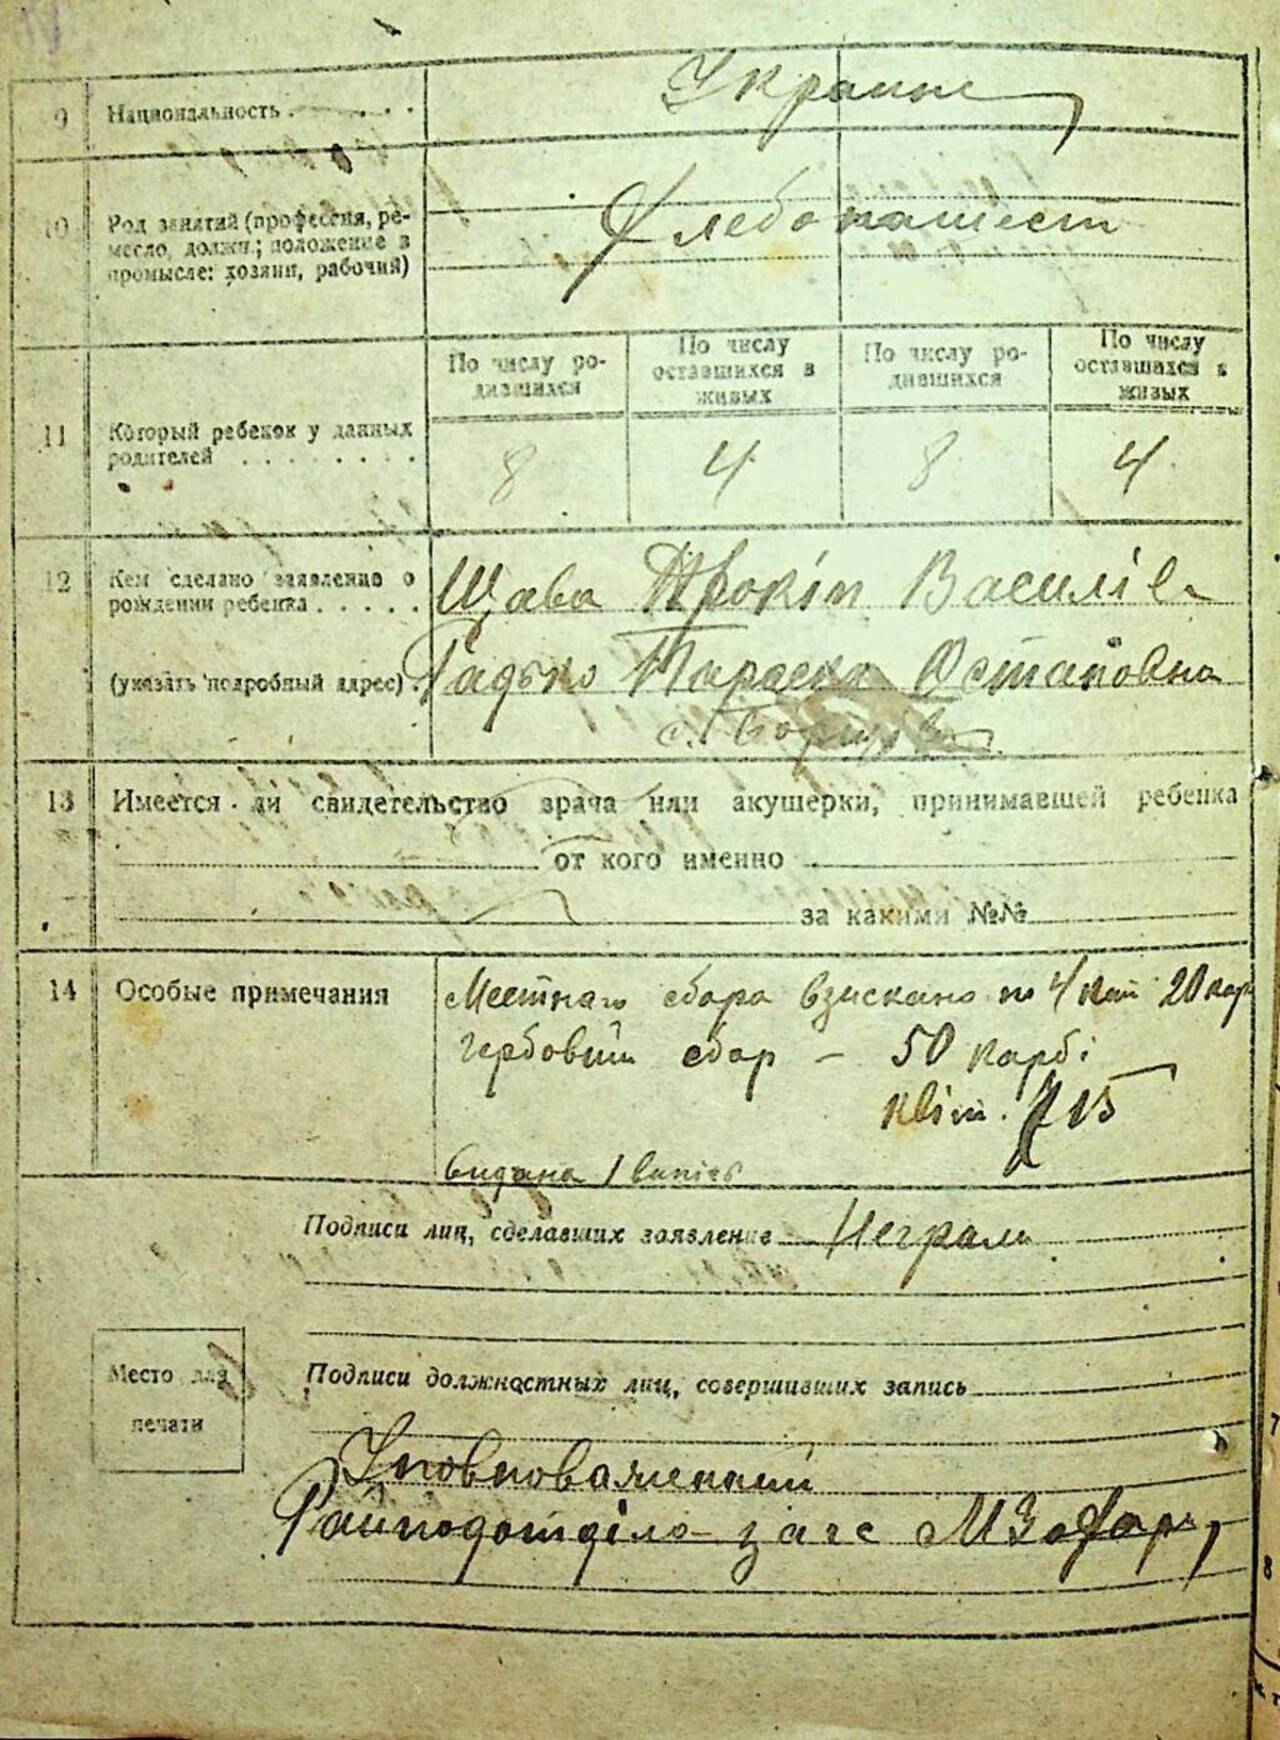 9 Национальность . . . . Украине
10 Род занятий (профессия, ре-
месло, должн.; положение в
промысле: хозяин, рабочий)
Хлебопашест
По числу ро-
дившихся
По числу
оставшихся в
живых
По числу ро-
дившихся
По числу
оставшихся в
живых
11 Который ребенок у данных
родителей . . . . . . . .
8 4 8 4
12 Кем сделано заявление о
рождении ребенка . . . . .
Щава Прокіп Василів
(указать подробный адрес) . Гадько Параска Остаповна
с.
13 Имеется ли свидетельство врача или акушерки, принимавшей ребенка
от кого именно
за какими №№
14 Особые примечания
Местнаго сбора взискано по 4 коп 20 кар
гербовий сбор – 50 карб:
квіт. 715
видана 1
Подписи лиц, сделавших заявление Неграм.
Подписи должностных лиц, совершивших запись
Место для
печати
Уповноважений
Райподотділа загс